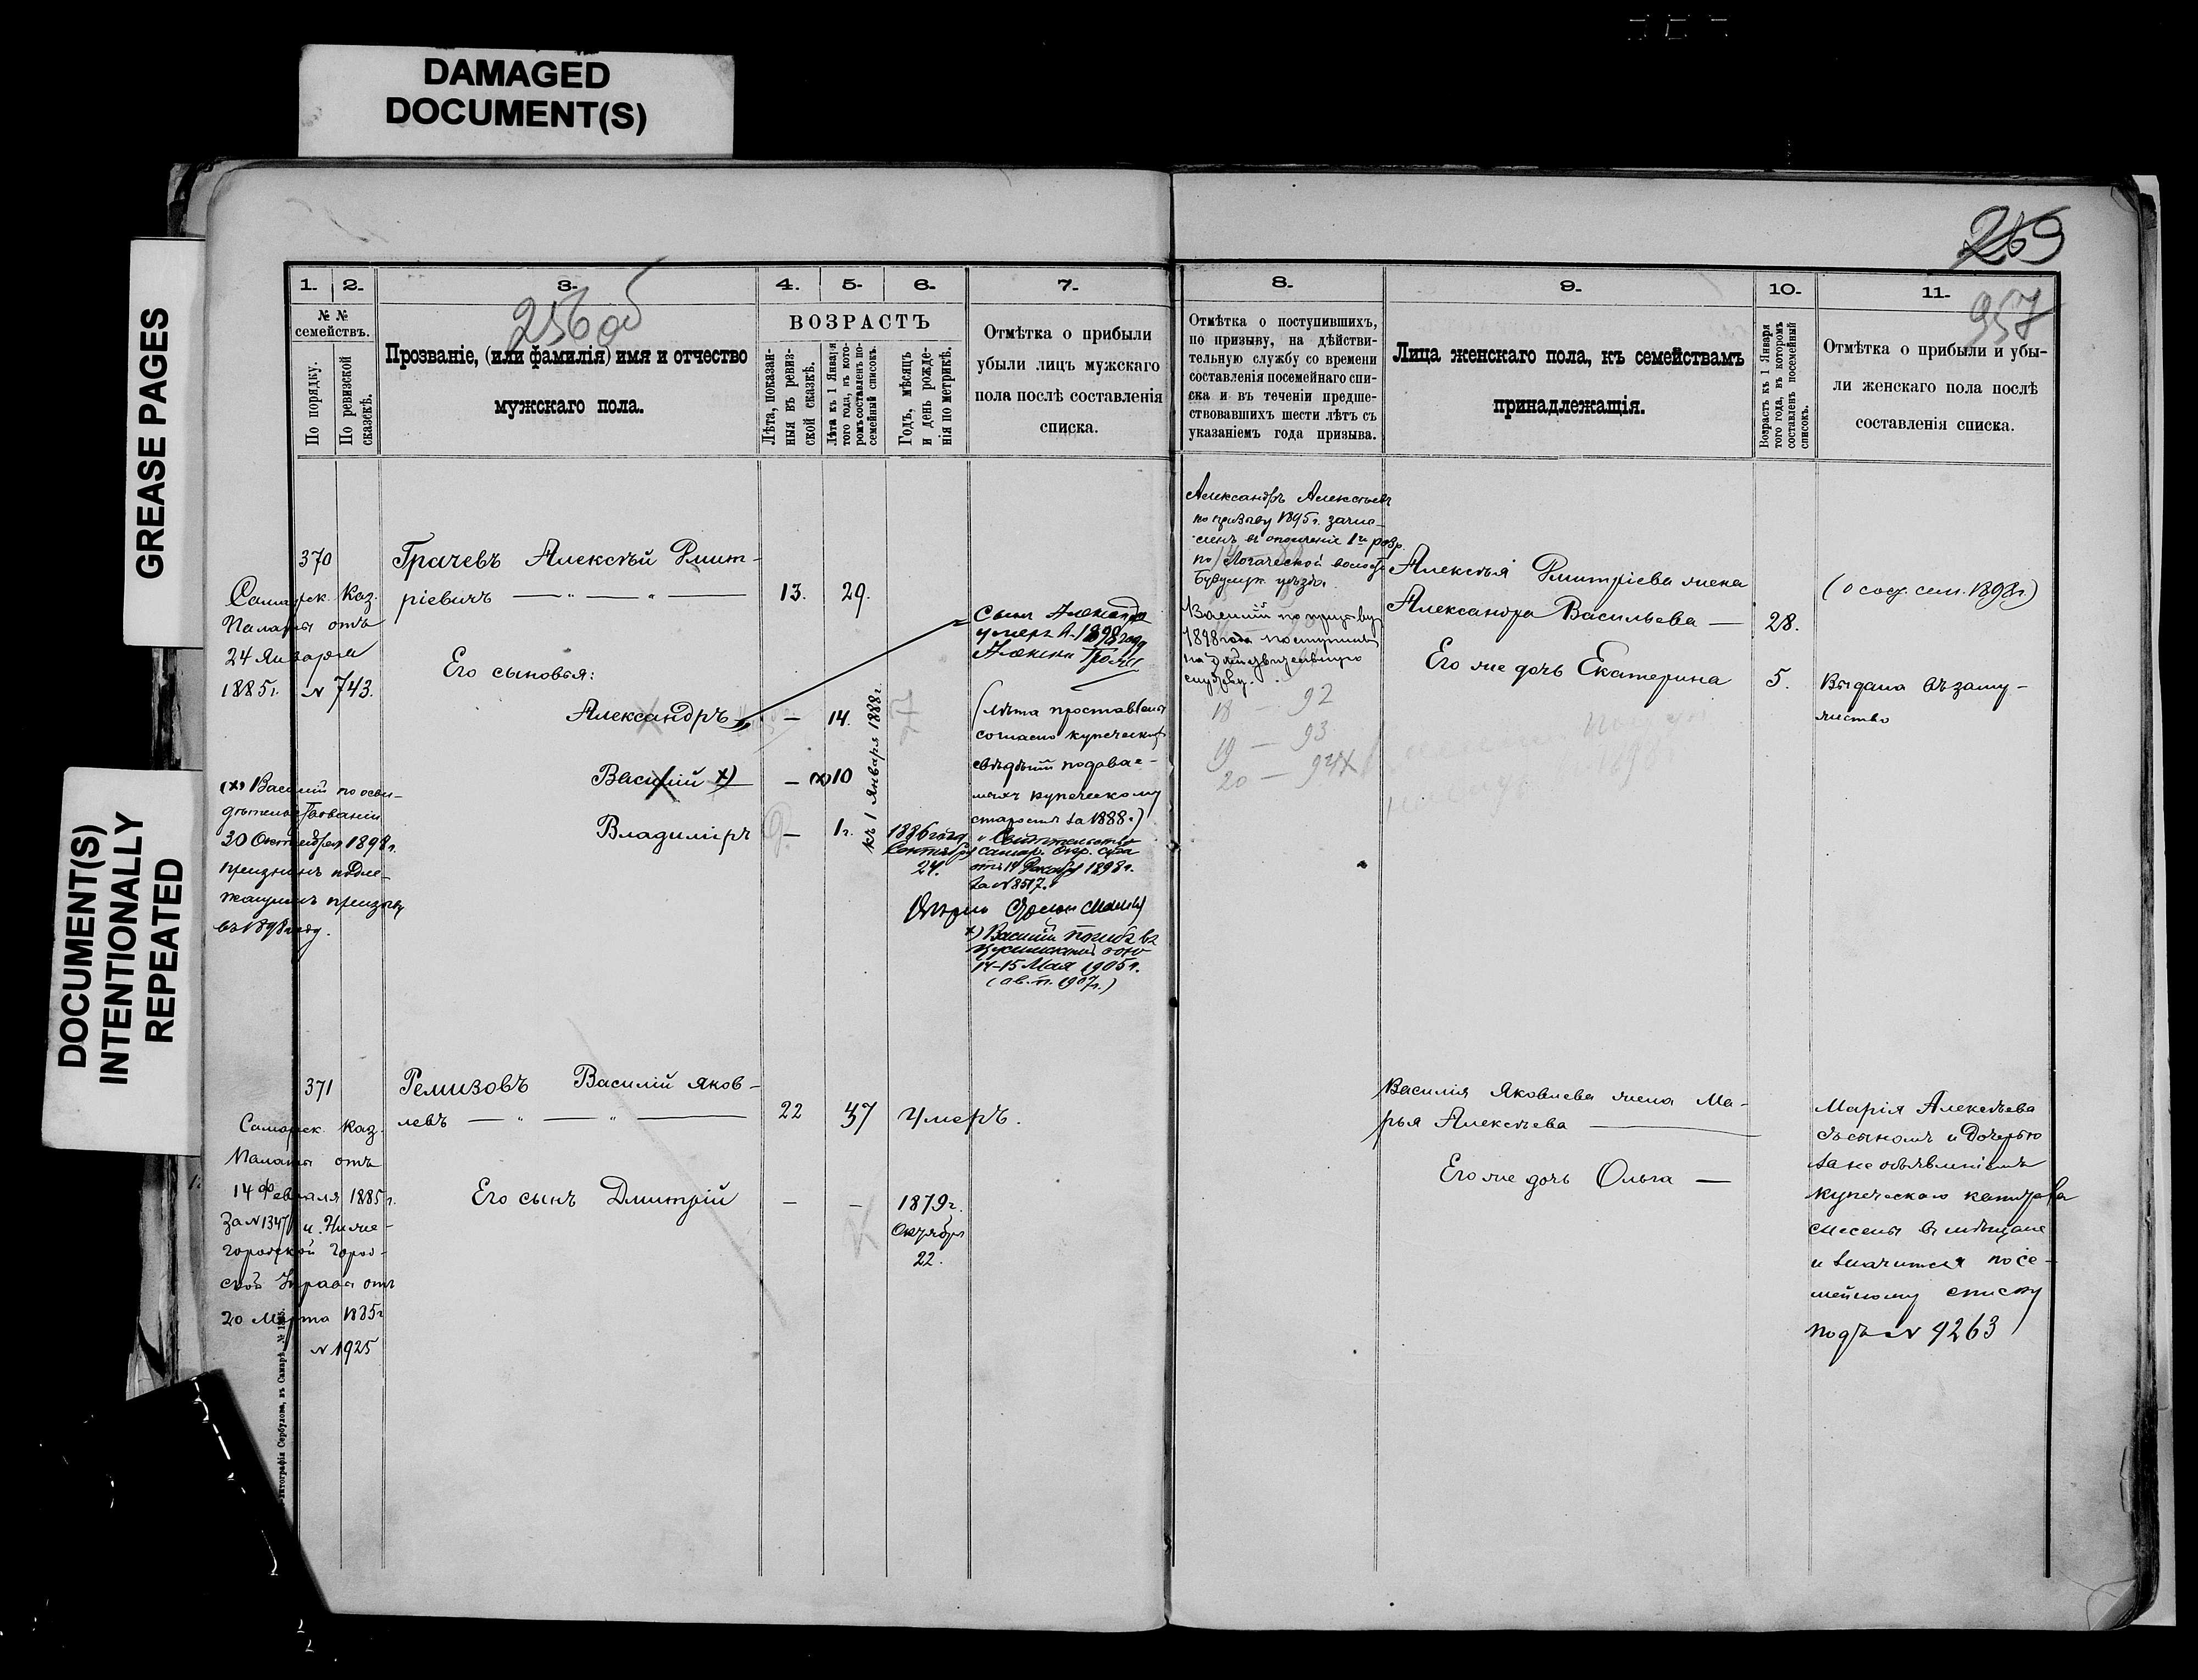 DAMAGED
DOCUMENT(S)
GREASE PAGES
DOCUMENT(S)
INTENTIONALLY
REPEATED
269
256 об
957
1.
2.
3.
4.
5.
6.
7.
8.
9.
10.
11.
№ №
семействъ.
По порядку.
По ревизской
сказкѣ.
Прозваніе, (или фамилія) имя и отчество
мужскаго пола.
ВОЗРАСТЪ
Лѣта, показан-
ныя въ ревиз-
ской сказкѣ.
Лѣта къ 1 Января
того года, въ кото-
ромъ составленъ по-
семейный списокъ.
Годъ, мѣсяцъ
и день рожде-
нія по метрикѣ.
Отмѣтка о прибыли
убыли лицъ мужскаго
пола послѣ составленія
списка.
Отмѣтка о поступившихъ,
по призыву, на дѣйстви-
тельную службу со времени
составленія посемейнаго спи-
ска и въ теченіи предше-
ствовавшихъ шести лѣтъ съ
указаніемъ года призыва.
Лица женскаго пола, къ семействамъ
принадлежащія.
Возрастъ къ 1 Января
того года, въ которомъ
составленъ посемейный
списокъ.
Отмѣтка о прибыли и убы-
ли женскаго пола послѣ
составленія списка.
370
Самарск. Каз.
Палаты отъ
24 Января
1885г. № 743.
Грачевъ Алексѣй Дмит-
ріевичъ
13.
29.
Его сыновья:
Александръ
—
14.
Василій х)
—
10
Владиміръ
—
1г.
къ 1 Января 1888г.
1886 года
Сентября
24.
(х) Василій по осви-
дѣтельствованіи
20 Октября 1898г.
признанъ подле-
жащимъ призыву
въ 1898 году.
Сынъ Александръ
умеръ въ 1898 году
(лѣта проставлены
согласно купеческихъ
свѣдѣній подавае-
мыхъ купеческому
старостѣ за 1888г.)
Свидѣтельство
Самар. Окр. Суда
за № 8517.
х) Василій погибъ въ
Цусимскомъ бою
14-15 Мая 1905г.
Александръ Алексѣевъ
по призыву 1895г. зачис-
ленъ въ ополченіе 1го разр.
Бузулук. уѣзда.
Василій по призыву
1898 года поступилъ
на дѣйствительную
службу.
18 — 92
19 — 93
20 — 94
Алексѣя Дмитріева жена
Александра Васильева —
28.
Его же дочь Екатерина
5.
Выдана въ заму-
жество
371
Самарск. Каз.
Палаты отъ
14 Февраля 1885г.
за № 1347 и Ниже-
городской Город-
ской Управы отъ
20 Марта 1885г
№ 1925
Ремизовъ Василій Яков-
левъ
22
37
Умеръ.
Его сынъ Дмитрій
—
—
1879г.
Октября
22.
Василія Яковлева жена Ма-
рья Алексѣева
Его же дочь Ольга —
Марія Алексѣева
съ сыномъ и дочерью
за не объявленіемъ
купеческаго капитала
въ мѣщане
и значится по се-
мейному списку
подъ № 4263